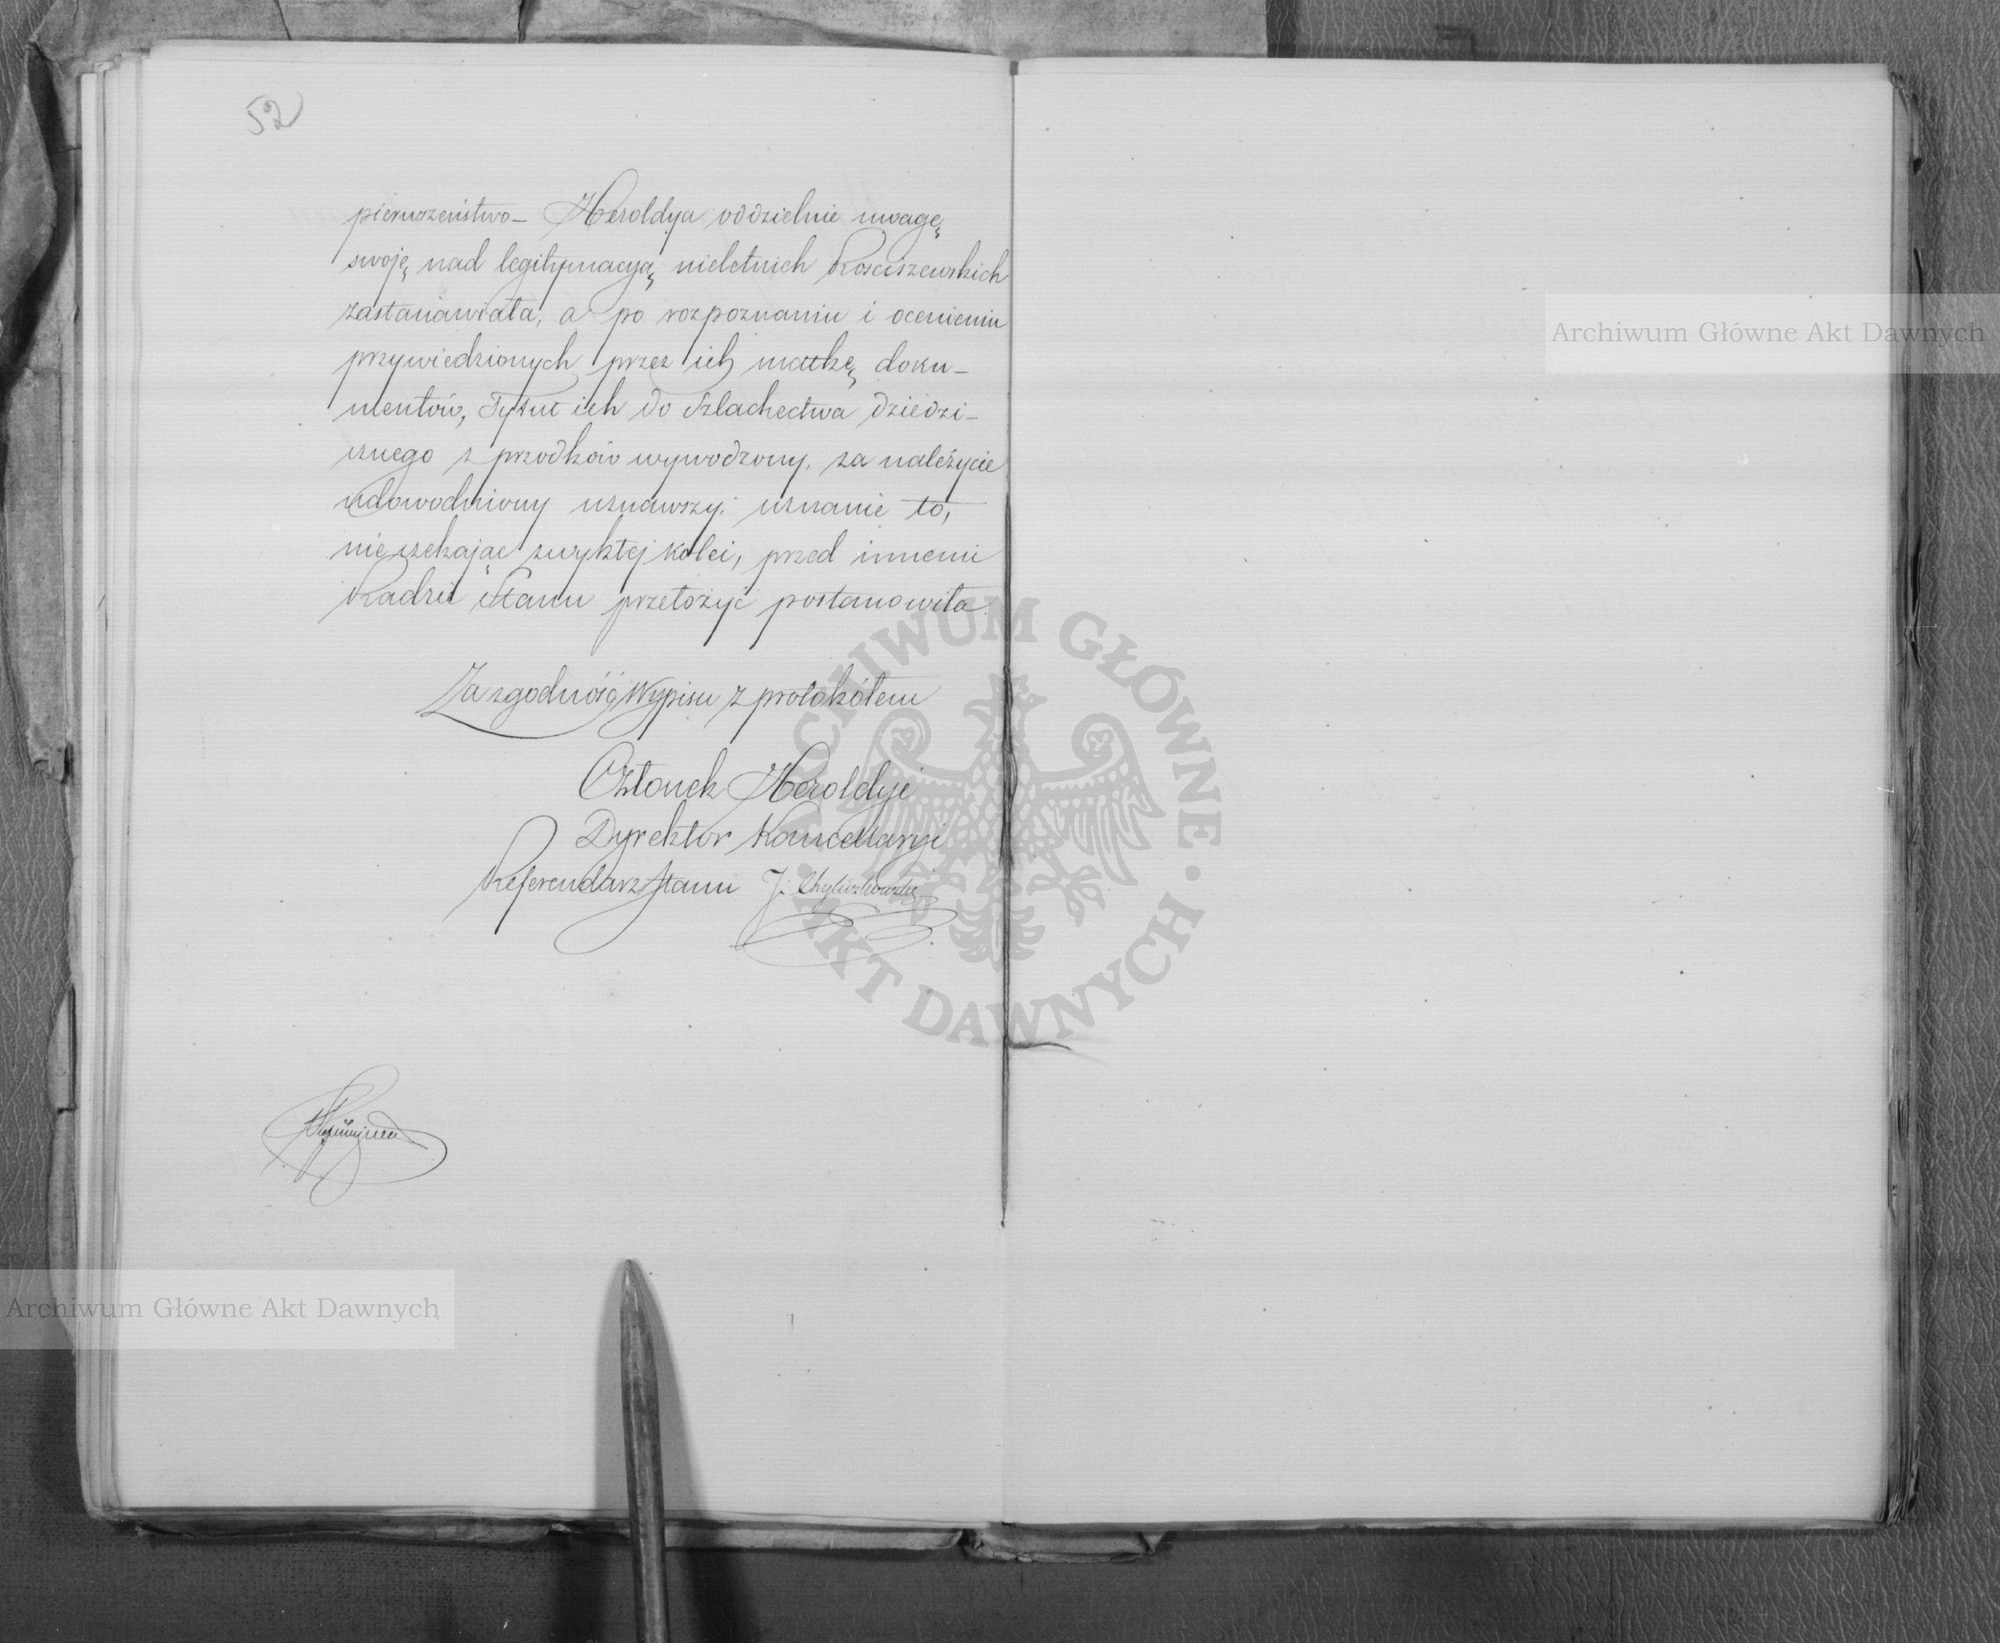 52
pierwszeństwo– Heroldya oddzielnie uwagę
swoję nad legitymacyą nieletnich Kosciszewskich
zastanawiała, a po rozpoznaniu i ocenieniu
przywiedzionych przez ich matkę doku–
mentów, Tytuł ich do Szlachectwa dziedzi–
cznego z przodków wywodzony, za należycie
udowodniony uznawszy, uznanie to,
nieczekając zwykłej kolei, przed innemi
Radzie Stanu przełożyć postanowiła.
Za zgodność Wypisu z protokółem
Członek Heroldyi
Dyrektor Kancellaryi
Referendarz Stanu J.
Archiwum Główne Akt Dawnych
ARCHIWUM GŁÓWNE · AKT DAWNYCH ·
Archiwum Główne Akt Dawnych